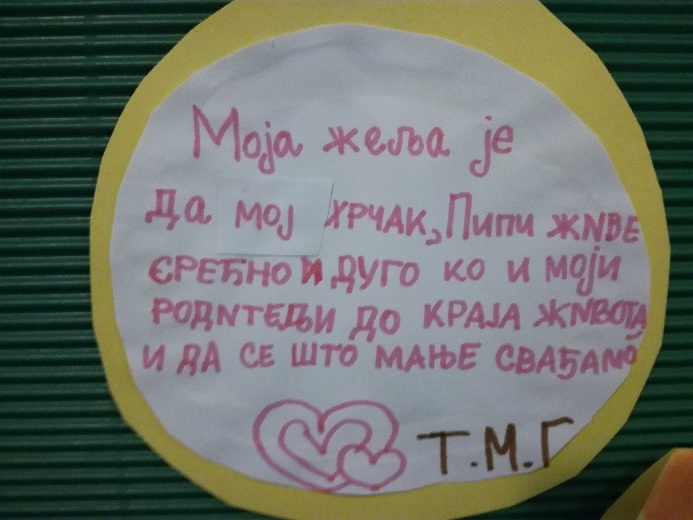 Моја жеља је
Да мој ХРЧАК, Пипи ЖИВЕ
СРЕЋНО И ДУГО КО И МОЈИ
РОДИТЕЉИ ДО КРАЈА ЖИВОТА
И ДА СЕ ШТО МАЊЕ СВАЂАМО
Т.М.Г